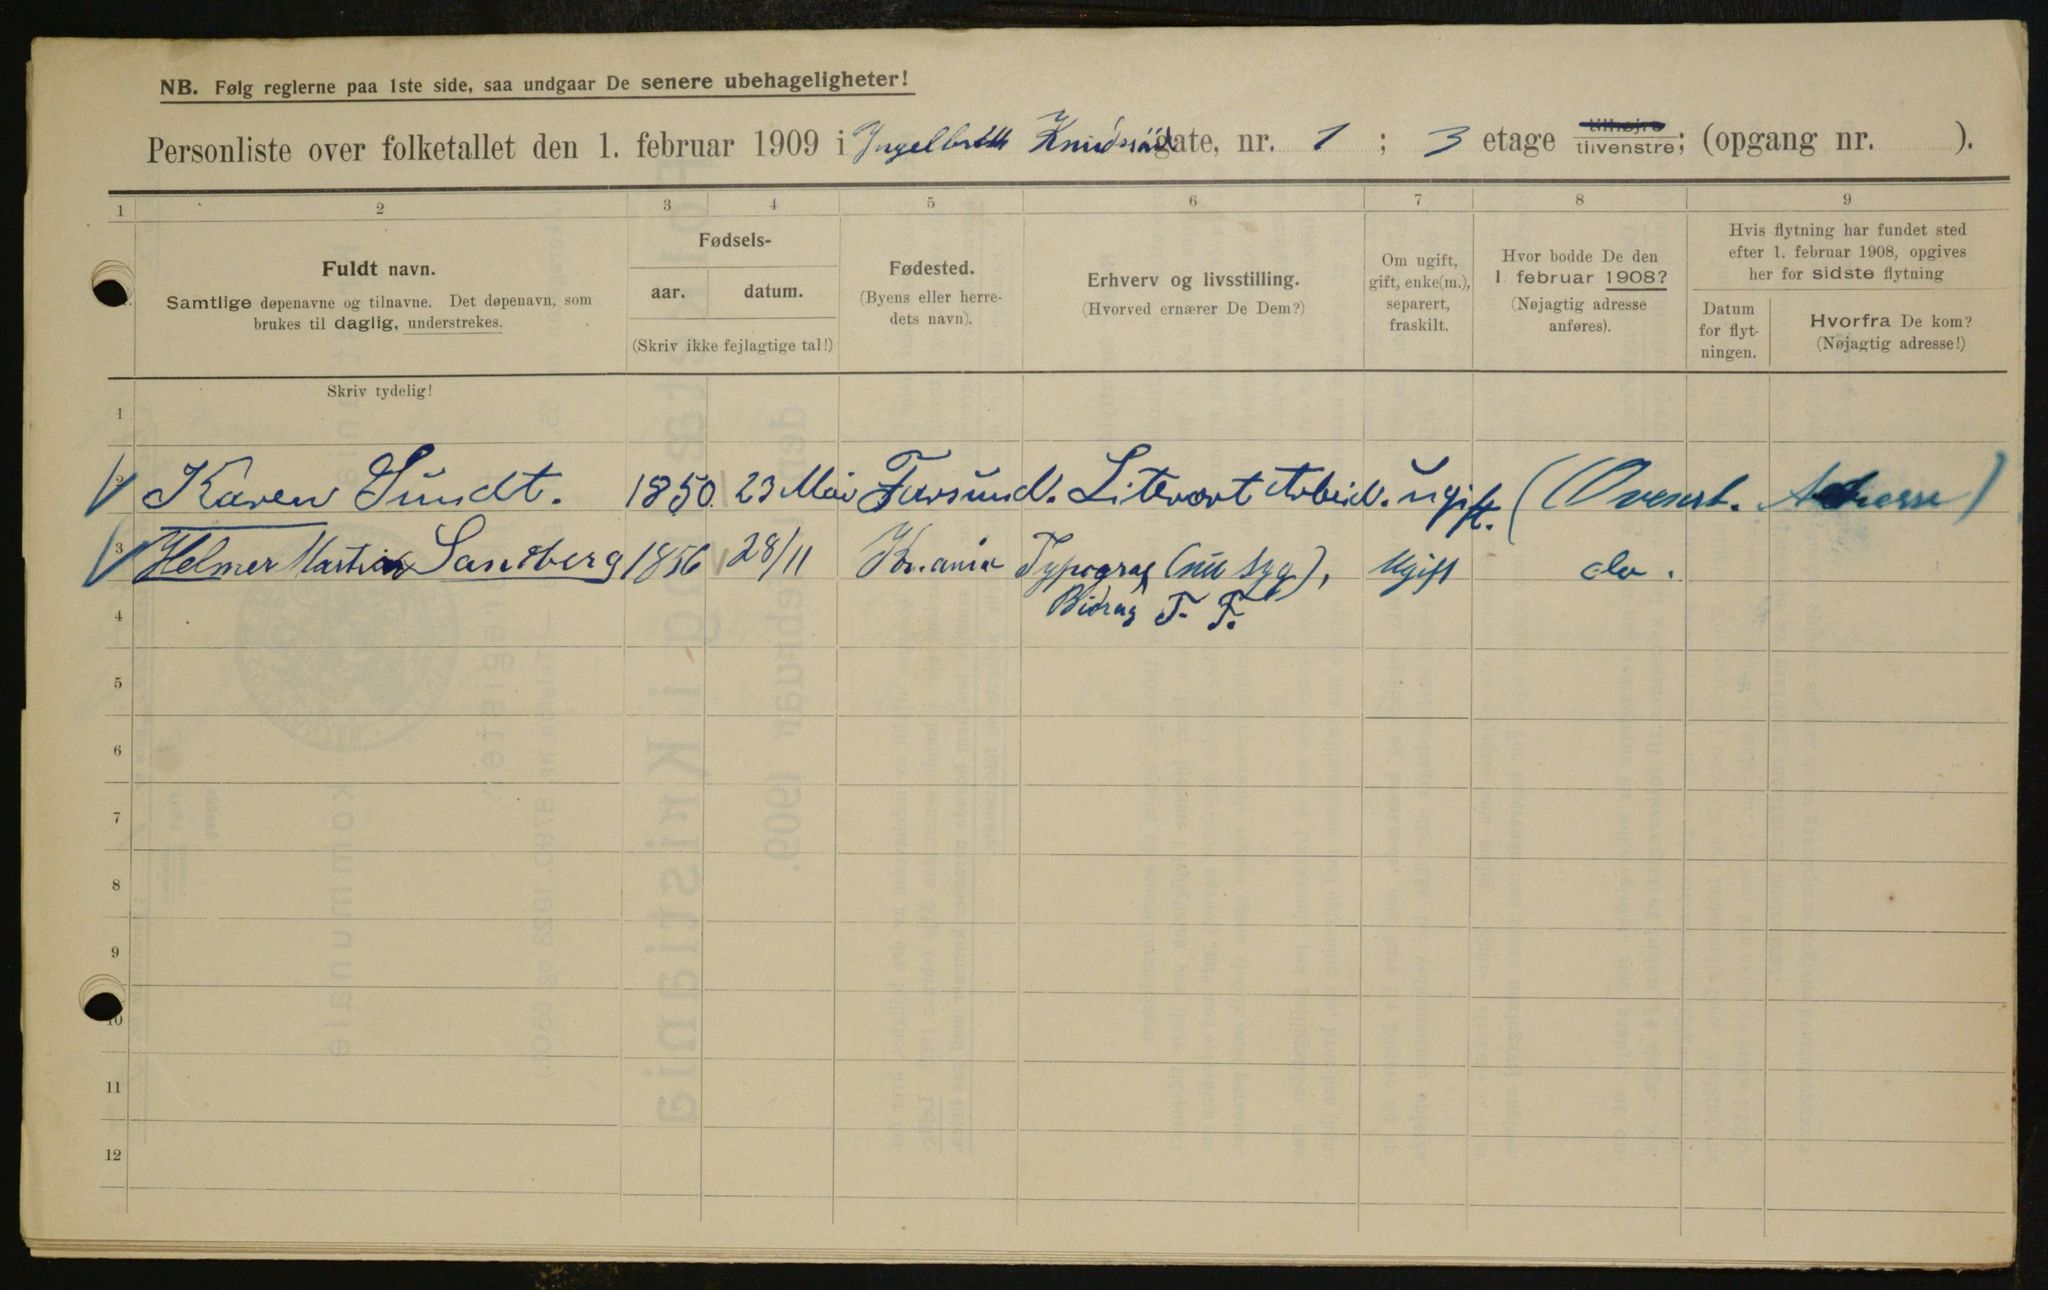 NB. Følg reglerne paa 1ste side, saa undgaar De senere ubehageligheter!
Personliste over folketallet den 1. februar 1909 i Ingelbreth Knudssøns gate, nr. 1 ; 3 etage tilhøjre tilvenstre; (opgang nr. ).
1 2 3 4 5 6 7 8 9
Fuldt navn.
Samtlige døpenavne og tilnavne. Det døpenavn, som
brukes til daglig, understrekes.
Fødsels-
aar. datum.
(Skriv ikke fejlagtige tal!)
Fødested.
(Byens eller herre-
dets navn).
Erhverv og livsstilling.
(Hvorved ernærer De Dem?)
Om ugift,
gift, enke(m.),
separert,
fraskilt.
Hvor bodde De den
1 februar 1908?
(Nøjagtig adresse
anføres).
Hvis flytning har fundet sted
efter 1. februar 1908, opgives
her for sidste flytning
Datum
for flyt-
ningen.
Hvorfra De kom?
(Nøjagtig adresse!)
Skriv tydelig!
1
2 Karen Sundt. 1850. 23 Mai Farsund. Literært Arbeid. ugift. (Ovenst. Adresse)
3 Helmer Martin Sandberg 1856 28/11 Kr.ania Typograf (nu syg), Ugift do.
4 Bidrag T. F.
5
6
7
8
9
10
11
12